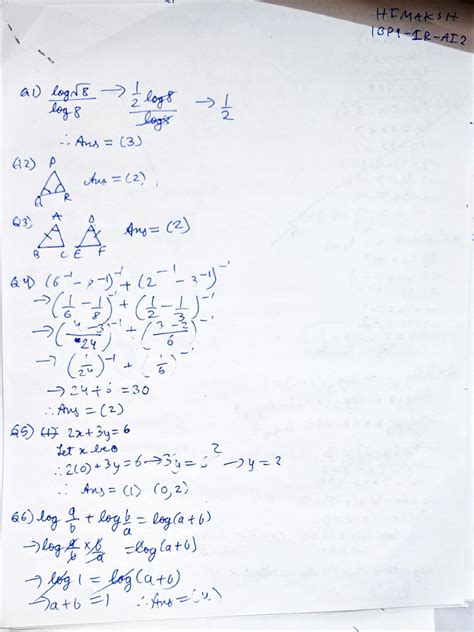 HIMAKSH
IBP1-IR-AI2
Q1) log√8 / log8 → 1/2 log8 / log8 → 1/2
∴ Ans = (3)
Q2) P Q R Ans = (2)
Q3) A B C D E F Ans = (2)
Q4) (6⁻¹ - 8⁻¹)⁻¹ + (2⁻¹ - 3⁻¹)⁻¹
→ (1/6 - 1/8)⁻¹ + (1/2 - 1/3)⁻¹
→ (4-3/24)⁻¹ + (3-2/6)⁻¹
→ (1/24)⁻¹ + (1/6)⁻¹
→ 24+6 = 30
∴ Ans = (2)
Q5) 2x+3y=6
Let x be 0
∴ 2(0)+3y=6 → 3y=6 2 → y=2
∴ Ans = (1) (0,2)
Q6) log a/b + log b/a = log(a+b)
→ log a/b × b/a = log(a+b)
→ log 1 = log(a+b)
→ a+b = 1 ∴ Ans =